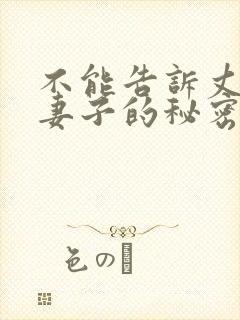 不能告訴丈
妻子的秘密
色の